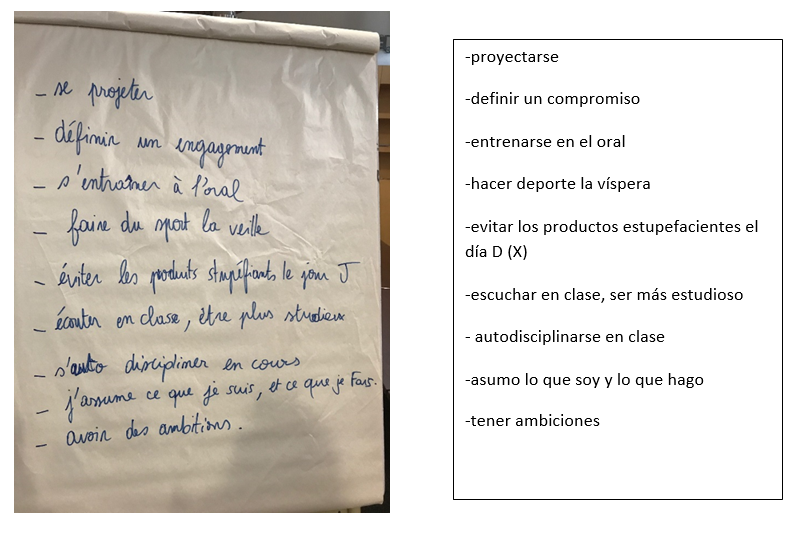 _ se projeter
_ définir un engagement
_ s'entraîner à l'oral
_ faire du sport la veille
_ éviter les produits stupéfiants le jour J
_ écouter en classe, être plus studieux
_ s'auto discipliner en cours
_ j'assume ce que je suis, et ce que je fais.
_ avoir des ambitions.
-proyectarse
-definir un compromiso
-entrenarse en el oral
-hacer deporte la víspera
-evitar los productos estupefacientes el
día D (X)
-escuchar en clase, ser más estudioso
- autodisciplinarse en clase
-asumo lo que soy y lo que hago
-tener ambiciones